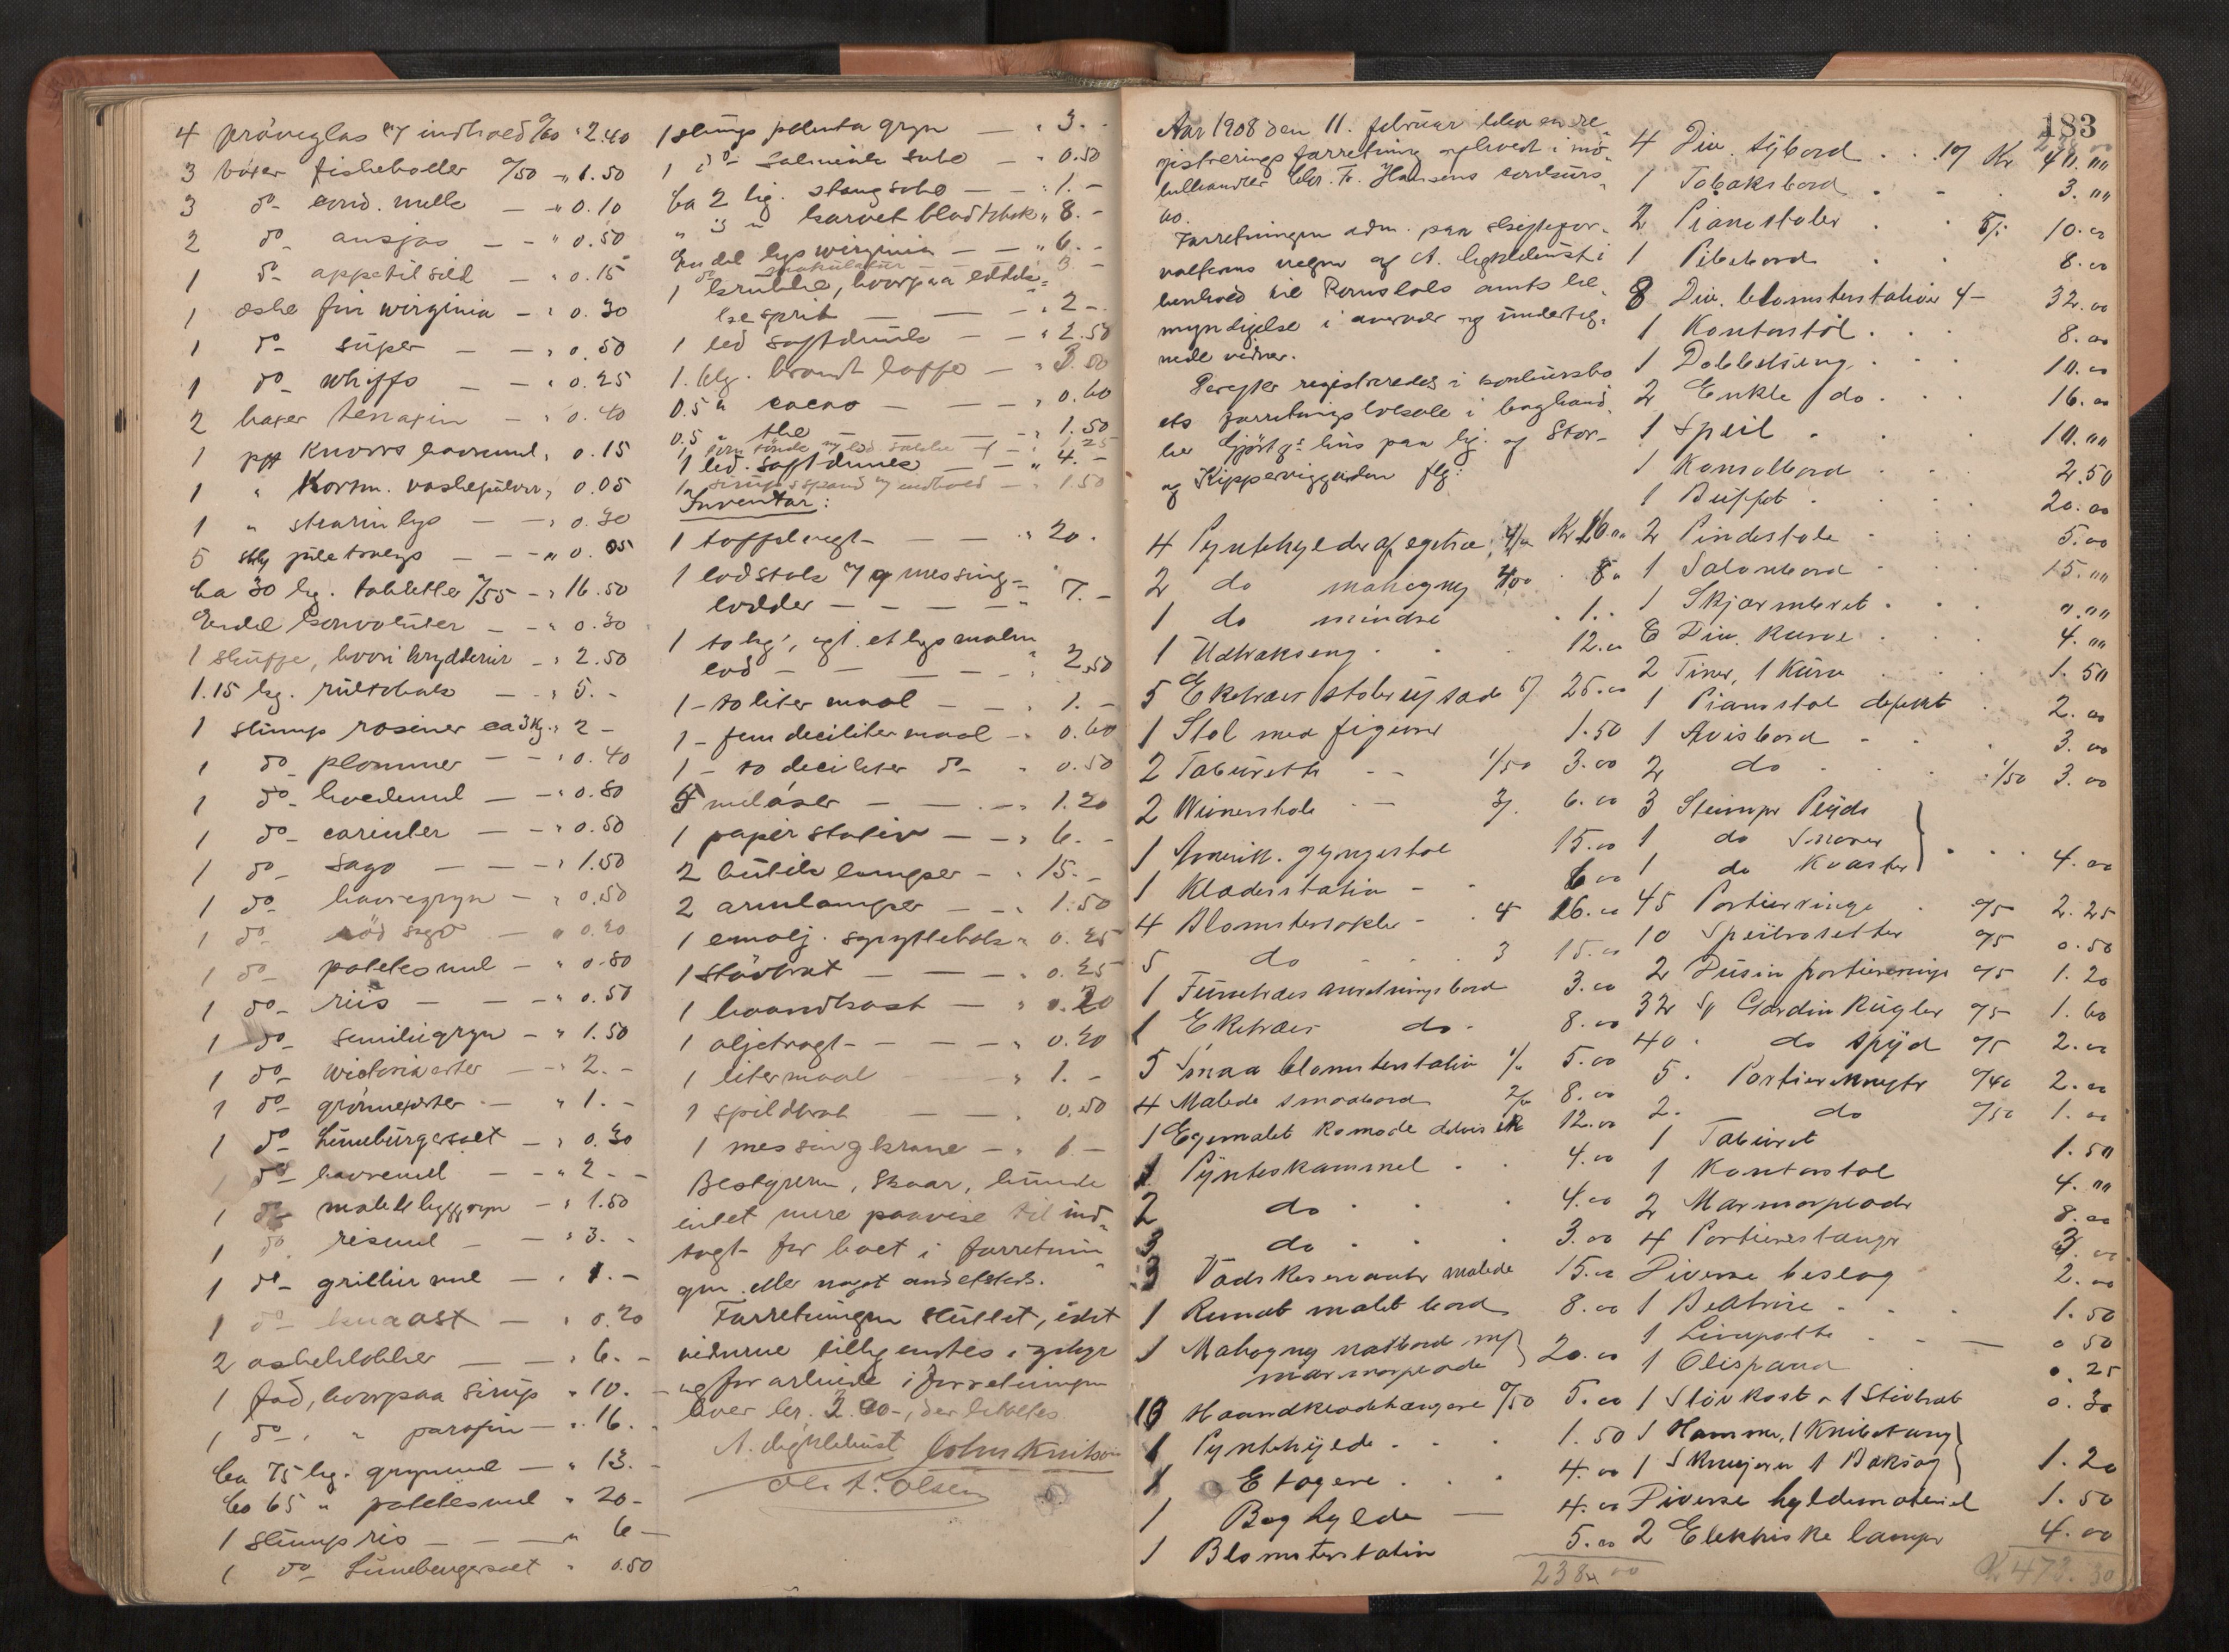 4 prøveglas m/ indhold 0/60 " 2.40
3 bøxer fiskeboller 0/50 - " 1.50
3 do - cond. melk - " 0.10
2 do - ansjos - - " 0.50
1 do - appetitsild - " 0.15
1 eske fin wirginia - " 0.30
1 do - süper - - " 0.50
1 do - whiffs - - " 0.25
2 baxer - " 0.40
1 pk Knorrs havremel " 0.15
1 " Korsm. vaskepulver " 0.05
1 " stearinlys - - " 0.30
5 stk juletrelys - - - " 0.05
ca 30 kg. tabletter 0/55 - " 16.50
Endel konvolutter - - " 0.30
1 skuffe, hvori krydderier - " 2.50
1.15 kg. rultobak - - " 5. -
1 slump rosiner ca 3 kg. " 2 -
1 do - plommer - - " 0.40
1 do - hvedemel - - " 0.80
1 do - corinter - - " 0.50
1 do - sago - - - " 1.50
1 do - havregryn - " 0.50
1 do - rød sago - " 0.20
1 do - potetesmel - " 0.80
1 do - riis - - - " 0.50
1 do - semuliegryn - " 1.50
1 do - wictoriaerter - - " 2. -
1 do - grønneerter - " 1. -
1 do - Lüneburgersalt - " 0.30
1 do - havremel - - " 2 - -
1 do - malte byggryn - " 1.50
1 do - rismel - - " 3. -
1 do - grillier mel - " 1. -
1 do - knaost - " 0.20
2 osteklokker - - " 6. -
1 fad, hvorpaa sirup " 10. -
1 do - " parafin - " 16. -
Ca 75 kg. grynmel - " 13. -
Ca 65 " potetesmel " 20 -
1 slump ris - - - " 6 -
1 do - Lüneburgersalt " 0.50
1 slump polenta gryn - " 3. -
1 do - Salmiak - " 0.50
Ca 2 kg. - - " 1. -
" 3 " karvet bladtobak " 8. -
En del lys wirginia - - " 6. -
do makulatur - 3 -
1 krukke, hvorpaa eddik-
kesprit - - - " 2 -
1 led saftdunk - - " 2.50
1. klg. brændt kaffe - " 3.50
0.5 " cacao - - - " 0.60
0.5 " the - - - - " 1.50
1 led. saftdunk - - " 4. -
1 sirupsspand m/ indhold - " 1.50
Inventar:
1 taffelvegt - - - " 20.
1 lodstok m/ 9 messing-
lodder - - - - - " 7. -
1 to kg', ogt. et kgs malm
lod - - - - - " 2.50
1 - to liter maal - - " 1. -
1 - fem deciliter maal - " 0.60
1 - to deciliter do - " 0.50
5 meløser - - . - " 1.20
1 papir stativ - - " 6. -
2 butik lamper - " 15. -
2 armlamper - - " 1.50
1 emalj. spyttebak " 0.25
1 støvbret - - - " 0.25
1 haandkost - " 0.20
1 oljetragt - - - - " 0.20
1 liter maal - " 1. -
1 spildbrat - - " 0.50
1 messingkrane - " 1 -
Bestyreren, Skaar, kunde
intet mere paavise til ind-
tægt for boet i forretnin-
gen eller noget andetsteds.
Forretningen sluttet, idet
vidnerne tillig
og for arbeide i forretningen
hver kr. 2.00 -, der
A. Legklebust John Knutson
Ole A. Olsen
183
Aar 1908 den 11. februar blev en re-
gistreringsforretning avholdt i mø-
belhandler Chr. Fr. Hansens konkurs-
bo.
Forretningen adm. paa skiftefor-
valterens vegne og A. Legklebust i
henhold til Romsdals amts be-
myndigelse i overvær og underteg-
nede vidner.
Derefter registreredes i konkursbo
ets forretningslokale i baghand-
ler Gjørtz's hus paa hj. af Stor-
og Kipperviggaden flg:
4 Pyntehylder af egetræ, 4/00 Kr 16.00
2 do mahogny 4/00 8.00
1 do mindre . 1. -
1 Udtrækseng . . . 12.00
5 Eketræes stoler uf sæde 5/ 25.00
1 Stol med figurer 1.50
2 Taburette - - 1/50 3.00
2 Wienerstole - - 3/. 6.00
1 Amerik. gyngestol 15.00
1 Kladerstativ - - 6.00
4 Blomstersokler - . 4 16.00
5 do - . . 3 15.00
1 Furutræes anretningsbord 3.00
1 Eketræes do - 8.00
5 Smaa blomsterstativ 1/00 5.00
4 Malede smaabord 2/00 8.00
1 Egemalet Komode 12.00
1 Pynteskammel . . 4.00
2 do . . . 4.00
3 do . . . 3.00
3 Vadskeservanter malede 15.00
1 Rundt malet bord 8.00
1 Mahogny natbord m/
marmorplade } 20.00
10 Haandklædehængere 0/50 5.00
1 Pyntehylde . . . 1.50
1 Etagere . . . 4.00
1 Boghylde - 4.00
1 Blomsterstativ 5.00
238.00
4 Div. Sybord . . 10/ Kr 40.00
1 Tobaksbord . . 3.00
2 Pianostoler . 5/. 10.00
1 Pibebord . . 8.00
8 Div. blomsterstativer 4 - 32.00
1 Kontorstol . . . 8.00
1 Dobbeltseng . . . 10.00
2 Enkle do . . . 16.00
1 Speil . . . 10.00
1 Konsolbord . . . 2.50
1 Buffet . . . 20.00
2 Pindestole . . 5.00
1 Salonbord . . 15.00
1 Skjærmbret . . . ".""
6 Div. Kurve . . . 4.00
2 Tiner, 1 Kurv . . 1.50
1 Pianostol defekt . 2.00
1 Avisbord - . . 3.00
2 do . . . 1/50 3.00
3 Stumper Plyds
1 do Snorer
1 do Kvaster } . . . 4.00
45 Portierringe . 0/5 2.25
10 Speilrosetter 0/5 0.50
2 Dusin portierringe 0/5 1.20
32 St Gardinkugler 0/5 1.60
40 . do spyd 0/5 2.00
5 . Portierknegte 0/40 2.00
2. - do 0/50 1.00
1 Taburet 1.50
1 Kontorstol 4.00
2 Marmorplader 8.00
4 Portierestanger 3.00
Diverse beslag 2.00
1 . . . 1.50
1 Limpotte . - - 0 50
1 Oliespand . 0.25
1 Støvkost & 1 Støvbrat 0.30
1 Hammer, 1 Knibetang
1 Skrujern 1 Baksag } 1.20
Diverse hyldemateriel 1.50
2 Elektriske lamper 4.00
Kr 473.30